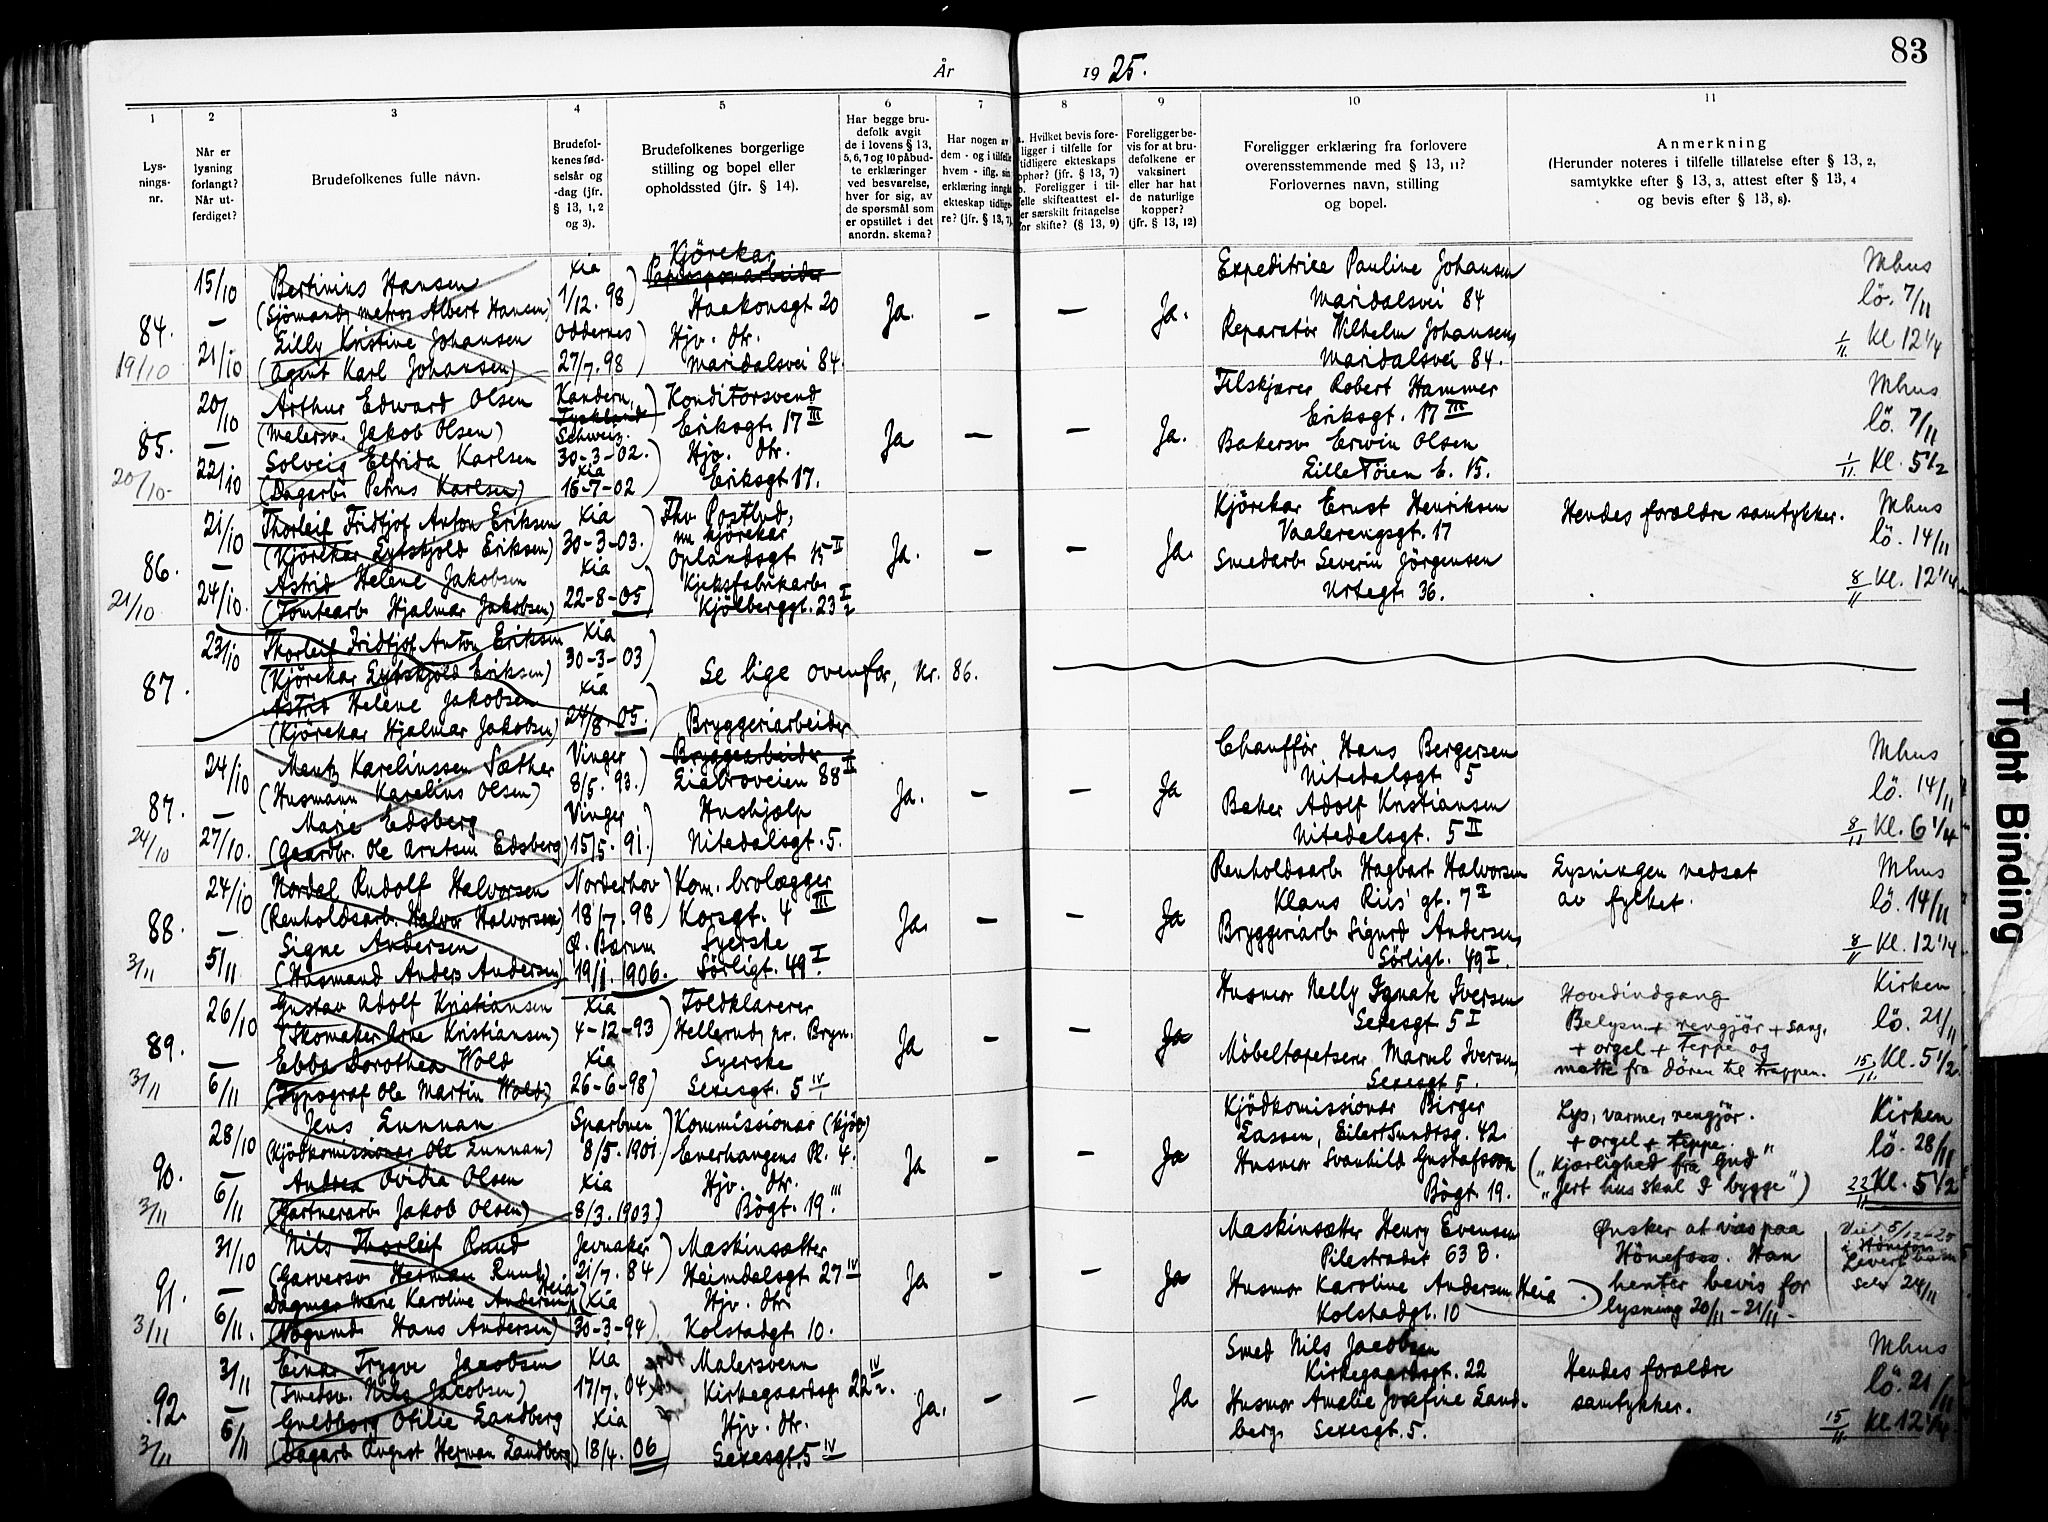 83
År 1925.
1 2 3 4 5 6 7 8 9 10 11
Lys-
nings-
nr.
Når er
lysning
forlangt?
Når ut-
ferdiget?
Brudefolkenes fulle navn.
Brudefol-
kenes fød-
selsår og
-dag (jfr.
§ 13, 1, 2
og 3).
Brudefolkenes borgerlige
stilling og bopel eller
opholdssted (jfr. § 14).
Har begge bru-
defolk avgit
de i lovens § 13,
5, 6, 7 og 10 påbud-
te erklæringer
ved besvarelse,
hver for sig, av
de spørsmål som
er opstillet i det
anordn. skema?
Har nogen av
dem - og i tilfelle
hvem - iflg. sin
erklæring inngått
ekteskap tidlige-
re? (jfr. § 13, 7).
a. Hvilket bevis fore-
ligger i tilfelle for
tidligere ekteskaps
ophør? (jfr. § 13, 7)
b. Foreligger i til-
felle skifteattest el-
ler særskilt fritagelse
for skifte? (§ 13, 9)
Foreligger be-
vis for at bru-
defolkene er
vaksinert
eller har hat
de naturlige
kopper?
(jfr. § 13, 12)
Foreligger erklæring fra forlovere
overensstemmende med § 13, 11?
Forlovernes navn, stilling
og bopel.
Anmerkning
(Herunder noteres i tilfelle tillatelse efter § 13, 2,
samtykke efter § 13, 3, attest efter § 13, 4
og bevis efter § 13, 8).
84.
19/10
15/10
—
21/10
Bertinius Hansen
(Sjömand, matros Albert Hansen)
Lilly Kristine Johansen
(Agent Karl Johansen)
Kia
1/12. 98)
Oddernes
27/7. 98)
Kjörekar
Haakonsgt 20
Hjv. dtr.
Maridalsvei 84.
Ja.
—
—
Ja.
Expeditrice Pauline Johansen
Maridalsvei 84
Reparatör Wilhelm Johansen,
Maridalsvei 84.
Mhus
lö. 7/11
1/11. Kl 12 1/4
85.
20/10-
20/10
—
22/10
Arthur Edward Olsen
(Malersv. Jakob Olsen)
Solveig Elfrida Karlsen
(Dagarb. Petrus Karlsen)
Kandern,
Tyskland
Schweiz.
30-3-02.
Kia
16-7-02
Konditorsvend
Eriksgt. 17 III
Hjv. dtr.
Eriksgt 17.
Ja
—
—
Ja.
Filskjærer Robert Hammer
Eriksgt. 17 III
Bakersv. Erwin Olsen
Lille Töien C. 15.
Mhus
lö. 7/11
1/11 Kl. 5 1/2
86.
21/10
21/10
—
24/10.
Thorleif Fridtjof Anton Eriksen
(Kjörekar Eybskjold Eriksen)
Astrid Helene Jakobsen
(Tomtearb. Hjalmar Jakobsen)
Kia
30-3-03.
Kia
22-8-05
Fhv. Postbud,
nu kjörekar
Oplandsgt 15 II
Kjeksfabrikarb.
Kjölberggt. 23 I
Ja.
—
—
Ja.
Kjörekar Ernst Henriksen
Vaalerengsgt. 17
Smedarb. Severin Jörgensen
Urtegt 36.
Hendes forældre samtykker.
Mhus
lö. 14/11
8/11 Kl. 12 1/4
87.
23/10
Thorleif Fridtjof Anton Eriksen
(Kjörekar Eybskjold Eriksen)
Astrid Helene Jakobsen
(Kjörekar Hjalmar Jakobsen)
Kia
30-3-03)
Kia
24/8. 05.
Se lige ovenfor, Nr. 86.
87.
24/10
24/10
—
27/10.
Mentz Karelinssen Sæther
(Husmann Karelius Olsen)
Marie Edsberg
(Gaardbr. Ole Arntsen Edsberg)
Vinger
8/5. 93.)
Vinger
15/5. 91.)
Bryggeriarbeider
Bryggearbeider
Liabroveien 88 II
Hushjælp
Nitedalsgt. 5.
Ja.
—
—
Ja
Chauffør Hans Bergersen
Nitedalsgt 5
Baker Adolf Kristiansen
Nitedalsgt. 5 II
Mhus
lö. 14/11
8/11 Kl. 6 1/4
88.
3/11
24/10
—
5/11
Nordal Rudolf Halvorsen
(Renholdsarb. Halvor Halvorsen)
Signe Andersen
(Husmand Anders Andersen)
Norderhov
18/7. 98)
Ø. Bærum
19/1. 1906.
Kom. brolægger
Korsgt. 4 III
Syerske
Sörligt. 49 I.
Ja.
—
—
Ja
Renholdsarb. Hagbart Halvorsen
Klaus Riis' gt. 7 I
Bryggeriarb. Sigurd Andersen,
Sörligt. 49 I.
Lysningen nedsat
av fylket.
Mhus
lö. 14/11
8/11 Kl. 12 1/4
89.
3/11
26/10
—
6/11
Gustav Adolf Kristiansen
(Skomaker Arne Kristiansen)
Ebba Dorothea Wold
(Typograf Ole Martin Wold)
Kia
4-12-93)
Kia
26-6-98)
Toldklarerer
Hellerud, pr. Bryn.
Syerske
Sexesgt. 5 IV.
Ja
—
—
Ja
Husmor Nelly Iversen
Sexesgt 5 I
Möbeltapetserer Marvel Iversen,
Sexesgt 5.
Hovedindgang
Belysn + rengjör + sang.
+ orgel + teppe og
matte fra dören til trappen.
Kirken
lö. 21/11
15/11. Kl. 5 1/2.
90.
3/11
28/10
—
6/11
Jens Lunnan
(Kjödkomissionær Ole Lunnan)
Andrea Ovidia Olsen
(Gartnerarb. Jakob Olsen)
Sparbuen
8/5. 1901.
Kia
8/3. 1903.)
Kommissionær (kjöd)
Enerhaugens Pl. 4.
Hjv. dtr.
Bögt. 19. III
Ja
—
—
Ja
Kjödkomissionær Birger
Lassen, Eilert Sundtsg. 42.
Husmor Svanhild Gustafsson
Bögt 19.
Lys, varme, rengjör.
+ orgel + teppe.
("Kjærlighed fra Gud"
"Jert hus skal I bygge")
Kirken
lö. 28/11
22/11 Kl. 5 1/2
91.
3/11
31/10
—
6/11.
Nils Thorleif Ruud
(Garversv. Herman Ruud)
Heia
Dagmar Marie Karoline Andersen,
(Vognmd. Hans Andersen)
Jevnaker
21/7. 84)
Kia
30-3-94)
Maskinsætter
Heimdalsgt 27 IV
Hjv. dtr
Kolstadgt 10.
Ja
—
—
Ja
Maskinsætter Henry Evensen
Pilestrædet 63 B.
Husmor Karoline Andersen Heia
Kolstadgt. 10
Ønsker at vies paa
Hönefoss. Han
henter bevis for
lysning 20/11 - 21/11 -
Viet 5/12-25
i Hönefoss
Levert ham
selv 24/11
92.
3/11
3/11
—
6/11
Einar Trygve Jacobsen
(Smedsv. Nils Jacobsen)
Guldborg Otilie Landberg
(Dagarb. August Herman Landberg)
Kia
17/7. 04
Kia
18/4. 06
Malersvenn
Kirkegaardsg. 22 IV.
Hjv. dtr.
Sexesgt. 5 IV
Ja.
—
—
Ja
Smed Nils Jacobsen
Kirkegaardsgt. 22
Husmor Amalie Josefine Land-
berg Sexesgt. 5.
Hendes forældre
samtykker.
Mhus
lö. 21/11
15/11. Kl 12 1/4
Tight Binding